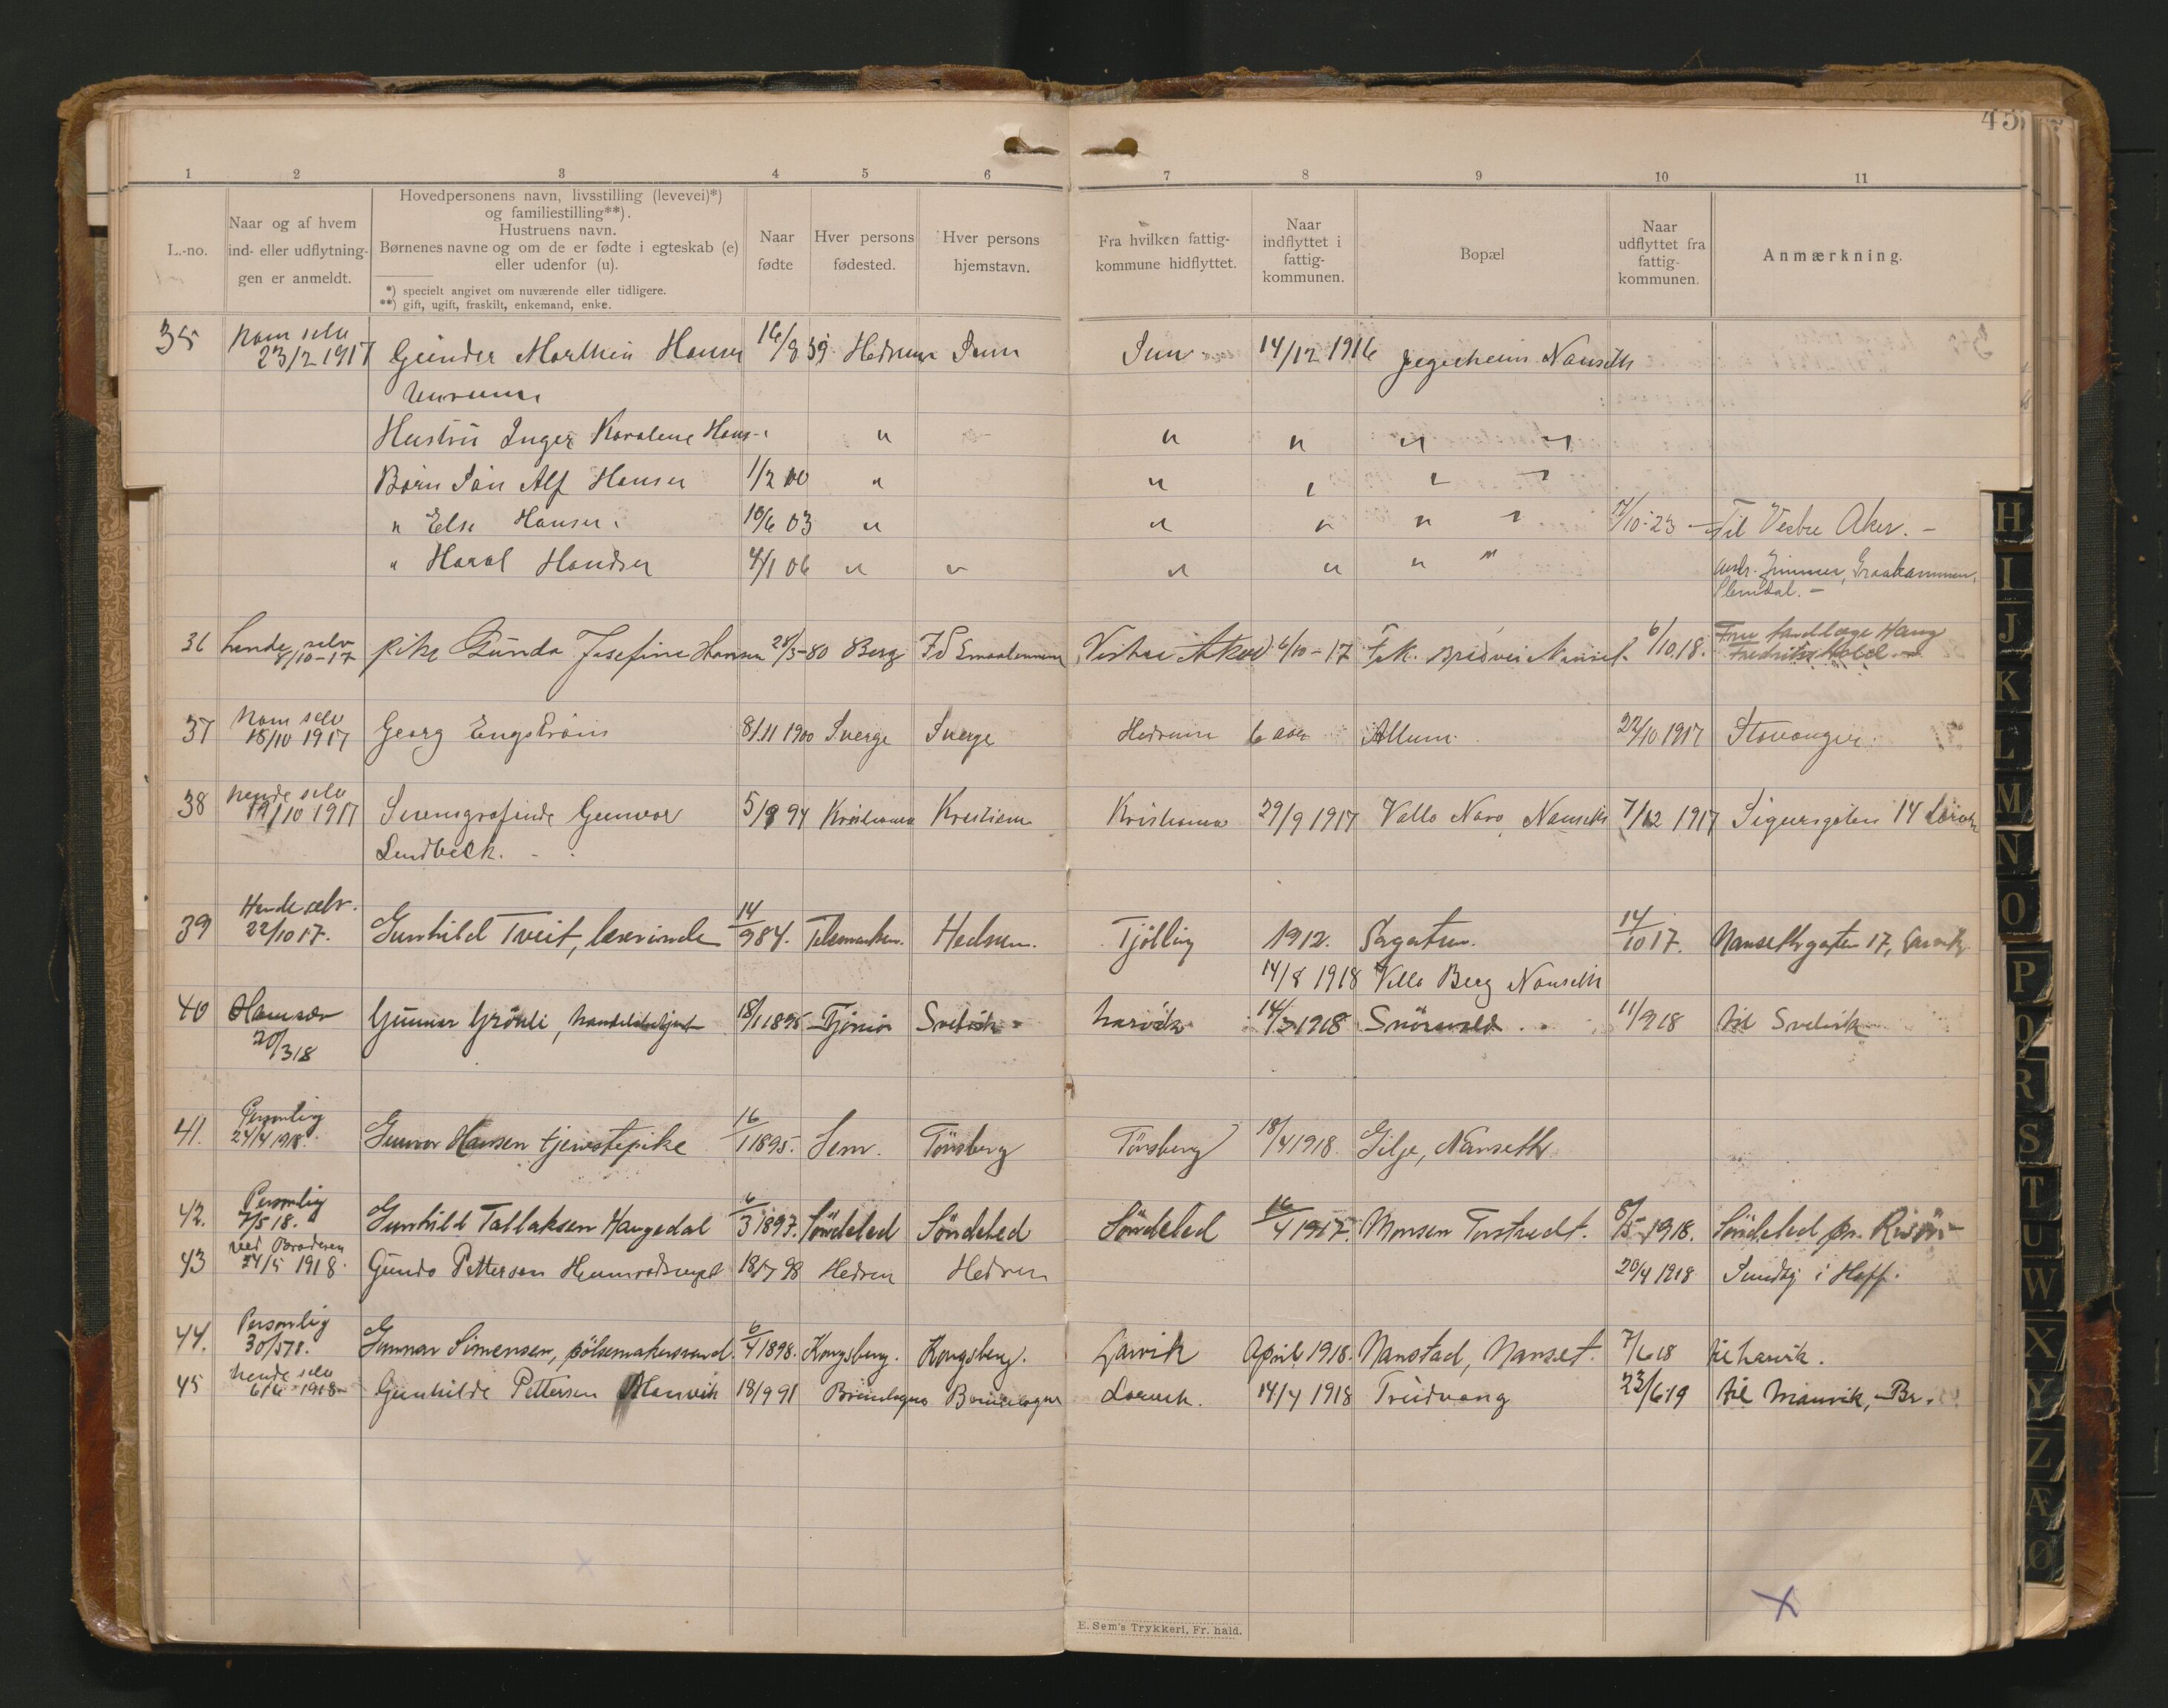 45
1 2 3 4 5 6 7 8 9 10 11
L.-no.
Naar og af hvem
ind- eller udflytnin-
gen er anmeldt.
Hovedpersonens navn, livsstilling (levevei)*)
og familiestilling**).
Hustruens navn.
Børnenes navne og om de er fødte i egteskab (e)
eller udenfor (u).
*) specielt angivet om nuværende eller tidligere.
**) gift, ugift, fraskilt, enkemand, enke.
Naar
fødte
Hver persons
fødested.
Hver persons
hjemstavn.
Fra hvilken fattig-
kommune hidflyttet.
Naar
indflyttet i
fattig-
kommunen.
Bopæl
Naar
udflyttet fra
fattig-
kommunen.
Anmærkning.
35 ham selv
23/2 1917 Gunder Marthin Hansen 16/8 59 Hedrum Sem Sem 14/12 1916 Jegerheim Nanseth
Hustru Inger Karoline Hans- " " " " "
Børn Jon Alf Hansen 1/2 00 " " " " "
" Else Hansen 10/6 03 " " " " " 7/10-23 - Til Vestre Aker. -
" Harol Handsen 4/1 06 " " " " " " Graakammen,
Slemdal. -
36 hende selv
8/10-17 pike Gunda Josefine Hansen 28/3-80 Berg Vestre Aker 6/10-17 Bredvei Nanset. 6/10.18. Fru tandlæge Haug
Fredrikshald
37 ham selv
18/10 1917 Georg Engström 8/11 1900 Sverge Sverge Hedrum 6 aar Allum 22/10 1917 Stavanger
38 hende selv
19/10 1917 Gunvor 5/9 94 Kristiania Kristiania Kristiania 29/9 1917 Nanseth 7/12 1917 14 Larvik
Lindbeck.
39 Hende selv.
22/10 17. Gunhild Tveit, lærerinde 14/9 84. Telemarken. Hedrum. Tjølling 1912. 14/10 17. Nansethgaten 17, Larvik
14/8 1918 Villa Berg Nanseth
40 Ham selv
20/3 18 Gunnar Grönli, handelsbetjent 18/1 1895 Tjømø Svelvik Larvik 14/3 1918 11/9 18 til Svelvik
41. Personlig
24/4 1918. Gunvor Hansen tjenestepike 16/1 1895. Sem. Tönsberg Tönsberg 18/4 1918. Gilje, Nanseth
42. Personlig
7/5 18. Gunhild Tallaksen Haugedal 6/3 1897. Söndeled Söndeled Söndeled 16/4 1917. Monsen Torstvedt. 8/5 1918. Söndeled pr. Risör
43 ved Broderen
24/5 1918. Gunda Pettersen 18/7 98 Hedrum Hedrum 20/4 1918 Sundby i Hoff.
44. Personlig
30/5 18. Gunnar Simensen, pölsemakersvend. 6/4 1898. Kongsberg. Kongsberg. Larvik April 1918. Nanstad, Nanset. 7/6 18 til Larvik.
45 hende selv
6/6 1918 Gunhilde Pettersen Manvik 18/9 91 Brunlagnes Brunlagnes Larvik. 14/4 1918 Trudvang 23/6 19 til Manvik, Br.
E. Sem's Trykkeri, Fr. hald.
H
I
J
K
L
M
N
O
P
Q
R
S
T
U
W
X
Y
Z
Æ
Ø